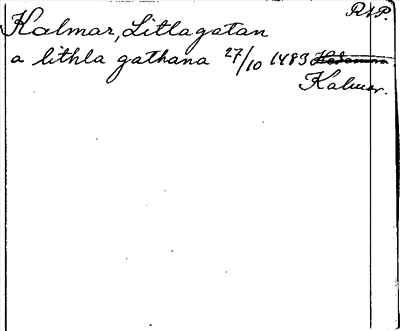 RAP.
Kalmar, Litlagatan
a lithla gathana 27/10 1483
Kalmar.